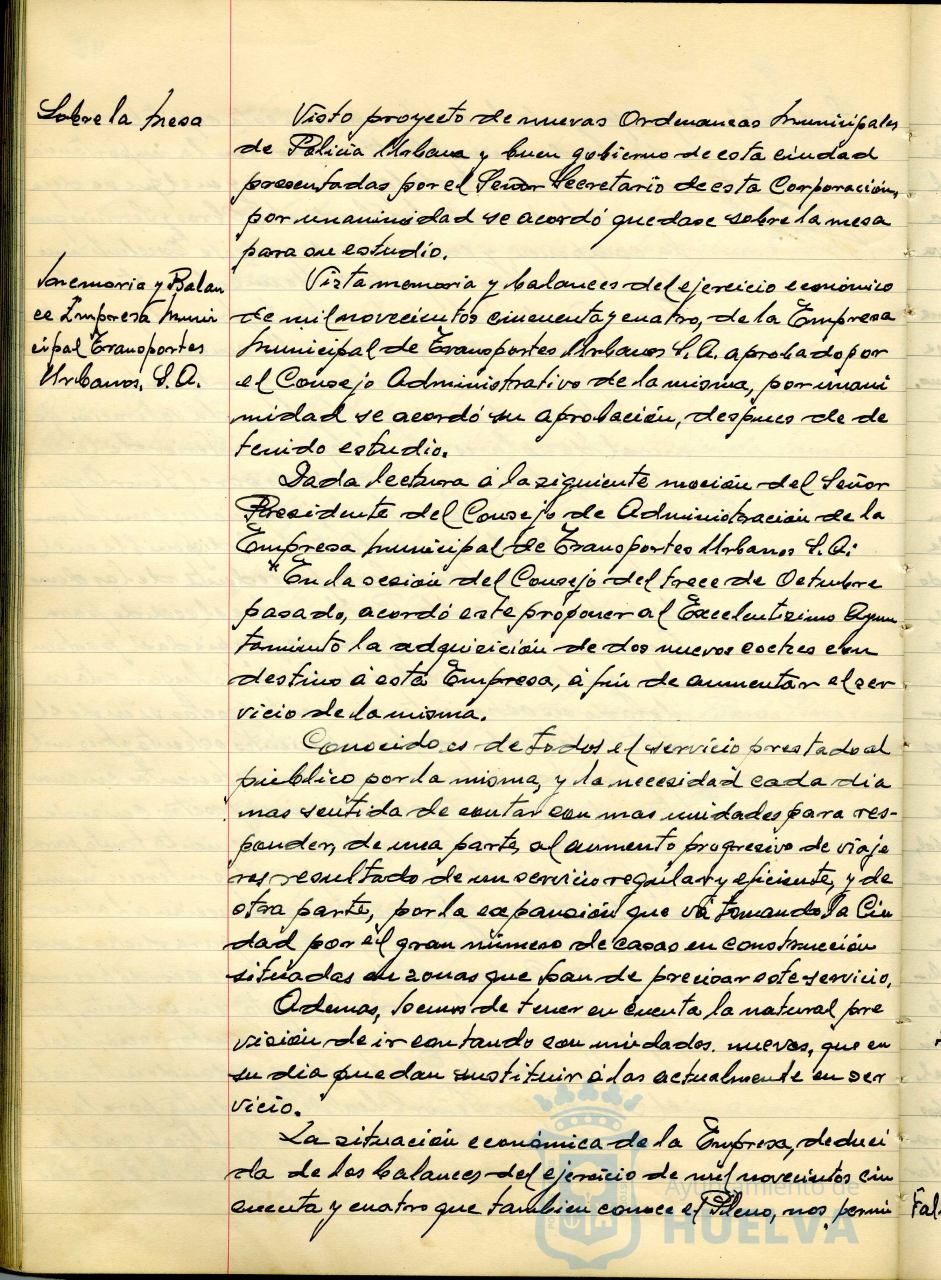 Sobre la mesa
Visto proyecto de nuevas Ordenanzas Municipales
de Policia Urbana y buen gobierno de esta ciudad
presentadas por el Señor Secretario de esta Corporación,
por unanimidad se acordó quedase sobre la mesa
para su estudio.
Memoria y Balan
ce Empresa Muni
cipal Transportes
Urbanos, S.A.
Vista memoria y balances del ejercicio económico
de mil novecientos cincuenta y cuatro, de la Empresa
Municipal de Transportes Urbanos S.A. aprobado por
el Consejo Administrativo de la misma, por unani
midad se acordó su aprobación, despues de de
tenido estudio.
Dada lectura á la siguiente moción del Señor
Presidente del Consejo de Administración de la
Empresa Municipal de Transportes Urbanos S.A:
"En la sesión del Consejo del trece de Octubre
pasado, acordó este proponer al Excelentisimo Ayun
tamiento la adquisición de dos nuevos coches con
destino á esta Empresa, á fin de aumentar el ser
vicio de la misma.
Conocido es de todos el servicio prestado al
público por la misma, y la necesidad cada dia
mas sentida de contar con mas unidades para res-
ponder, de una parte, al aumento progresivo de viaje
ros resultado de un servicio regular y eficiente, y de
otra parte, por la expansión que vá tomando la Ciu
dad por el gran número de casas en construcción
situadas en zonas que han de precisar este servicio.
Ademas, hemos de tener en cuenta la natural pre
visión de ir contando con unidades nuevas, que en
su dia puedan sustituir á las actualmente en ser
vicio.
La situación económica de la Empresa, deduci
da de los balances del ejercicio de mil novecientos cin
cuenta y cuatro que tambien conoce el Pleno, nos permi
Fal
Ayuntamiento de
HUELVA